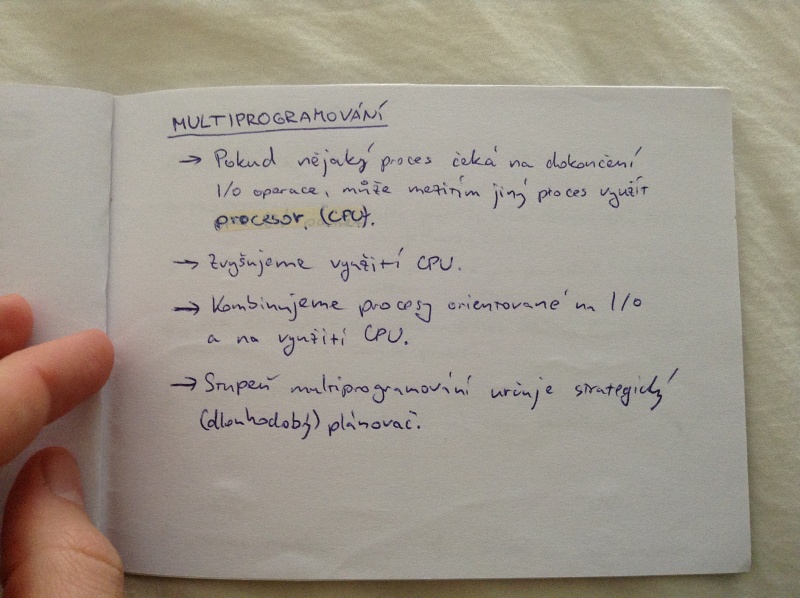 MULTIPROGRAMOVÁNÍ
→ Pokud nějaký proces čeká na dokončení
I/O operace, může mezitím jiný proces využít
procesor (CPU).
→ Zvyšujeme využití CPU.
→ Kombinujeme procesy orientované na I/O
a na využití CPU.
→ Stupeň multiprogramování určuje strategický
(dlouhodobý) plánovač.